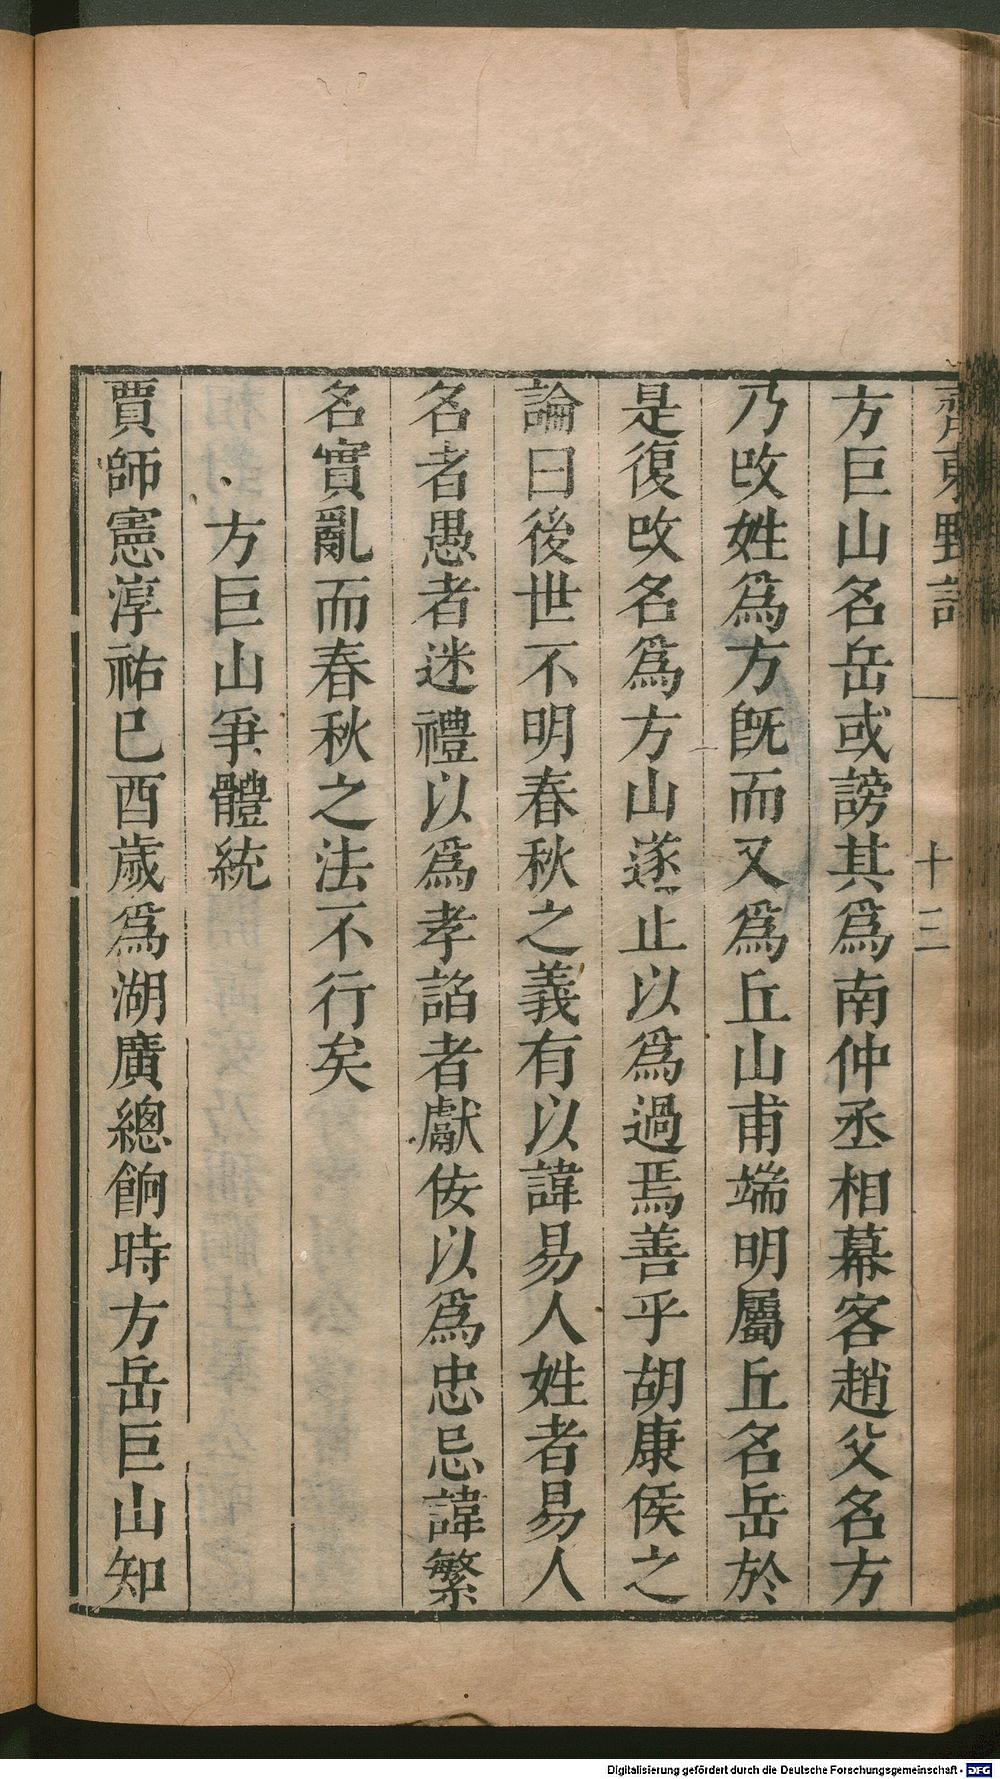 齊東野語
十三
方巨山名岳或謗其爲南仲丞相幕客趙父名方
乃攺姓爲方旣而又爲丘山甫端明屬丘名岳於
是復攺名爲方山遂止以爲過焉善乎胡康侯之
論曰後世不明春秋之義有以諱易人姓者易人
名者愚者迷禮以爲孝諂者獻佞以爲忠忌諱繁
名實亂而春秋之法不行矣
方巨山爭體統
賈師憲淳祐巳酉歲爲湖廣總餉時方岳巨山知
Digitalisierung gefördert durch die Deutsche Forschungsgemeinschaft - DFG